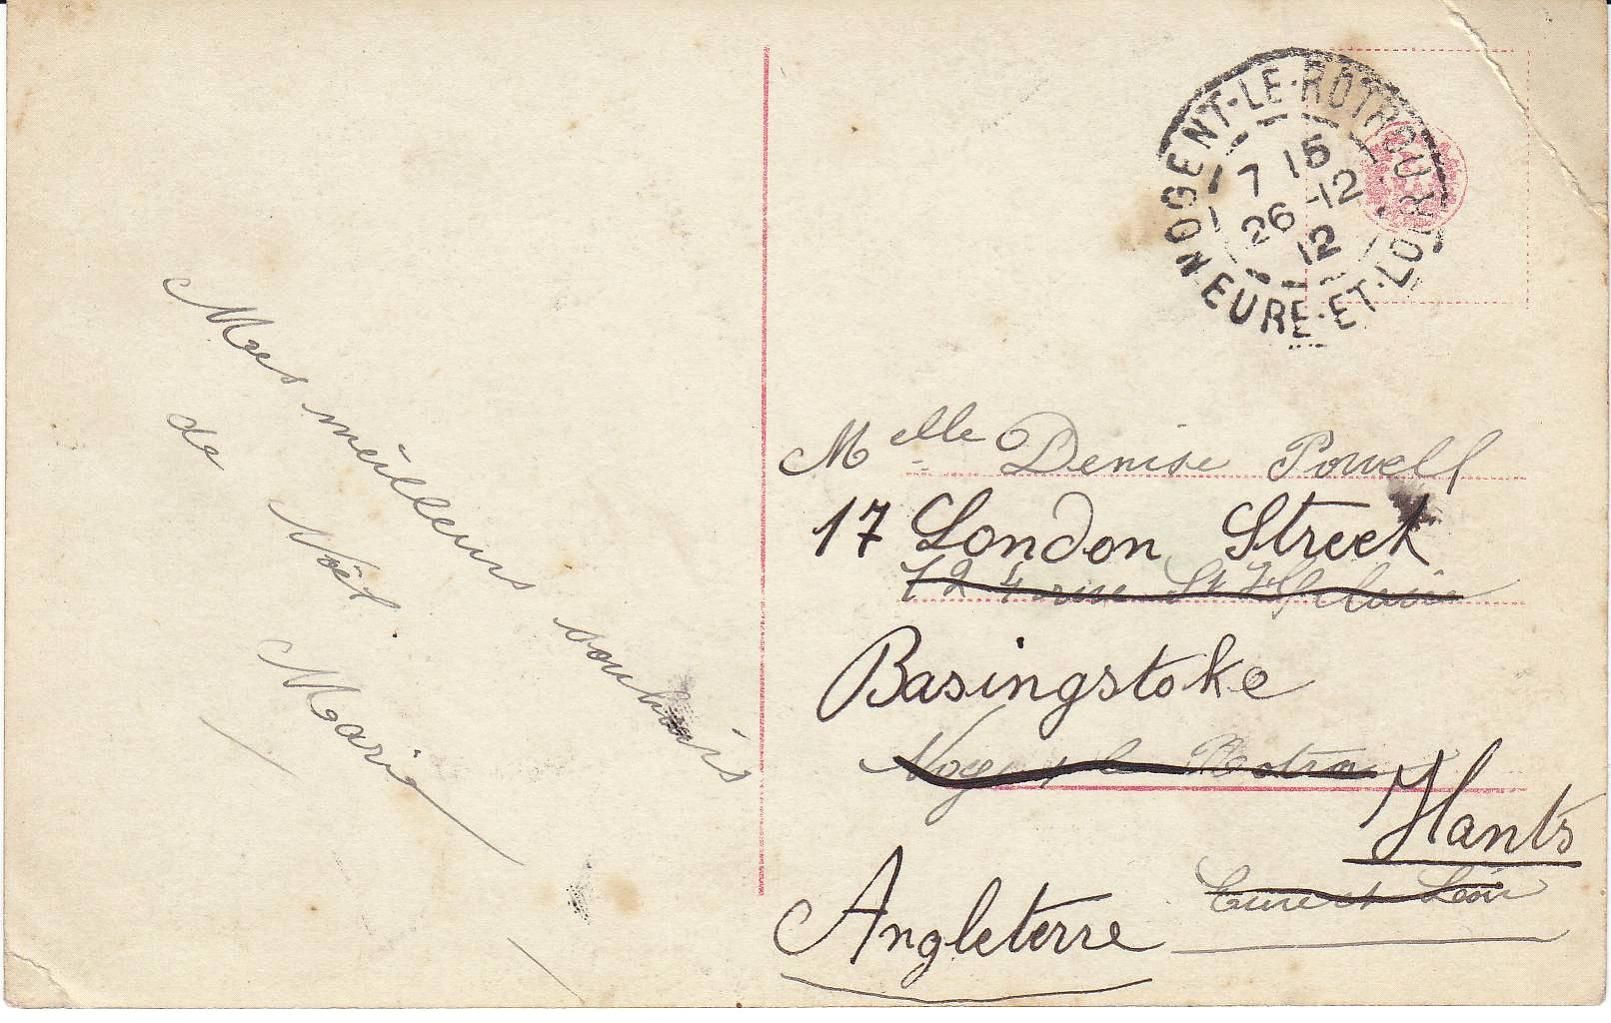 Mes meilleurs souhaits
de Noël.
Marie
NOGENT-LE-ROTROU
7 15
26-12
12
EURE-ET-LOIR
Melle Denise Powell
17 London Street
rue St Hilaire
Basingstoke
Nogent le Rotrou
Hants
Eure et Loir
Angleterre